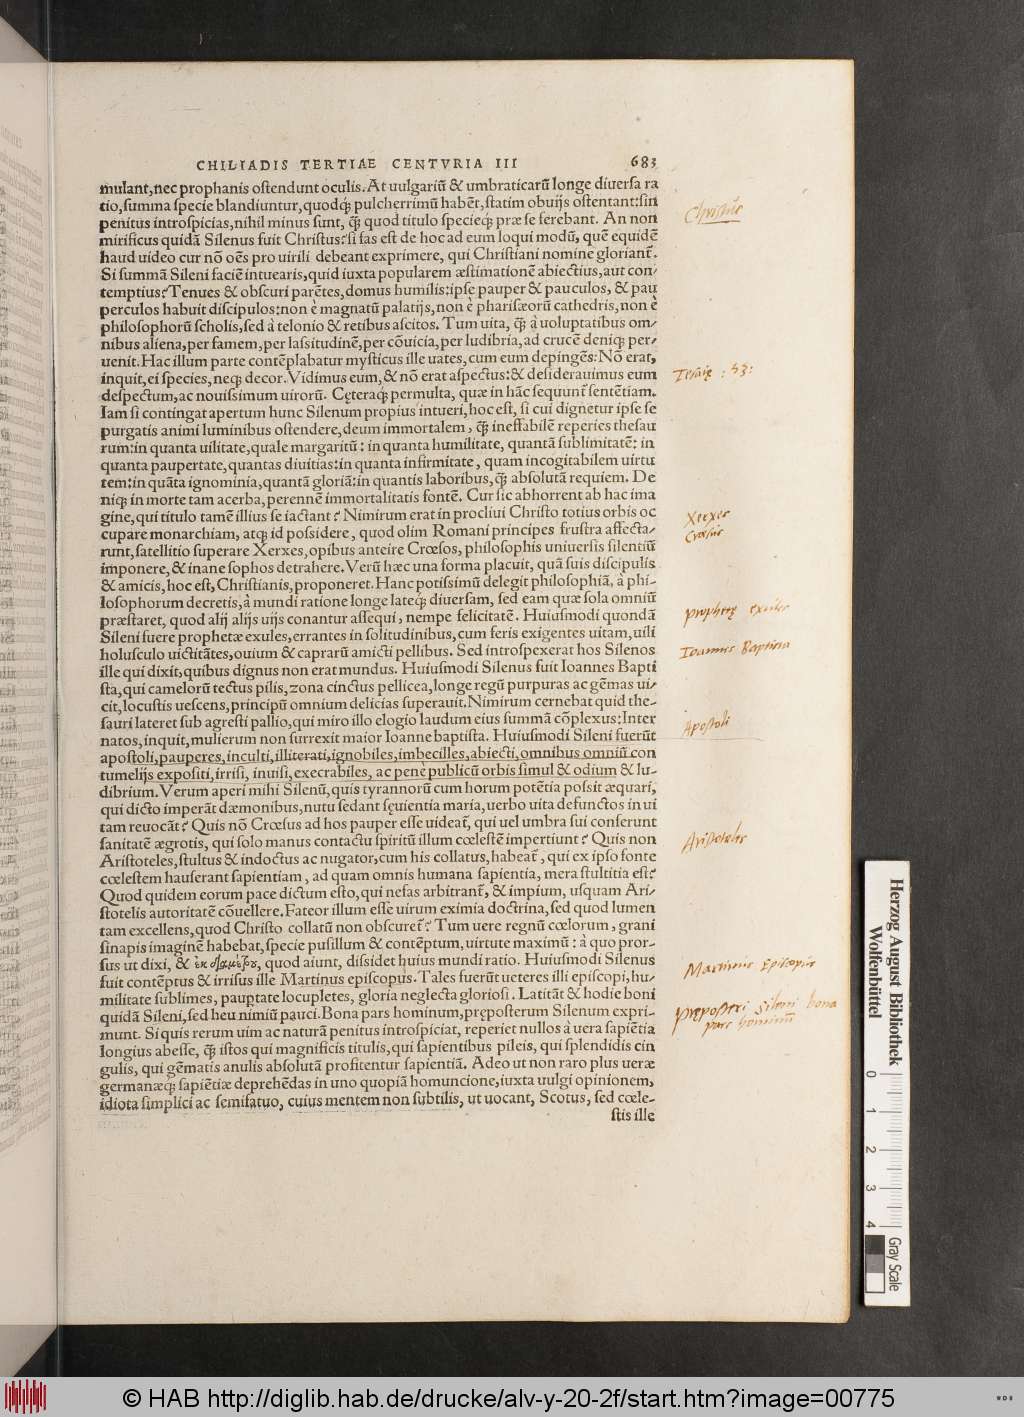 CHILIADIS TERTIAE CENTVRIA III 683
mulant,nec prophanis ostendunt oculis. At uulgariũ & umbraticarũ longe diuersa ra
tio,summa specie blandiuntur,quodq́; pulcherrimũ habẽt,statim obuijs ostentant:sin
penitus introspicias,nihil minus sunt, q̃; quod titulo specieq́; præ se ferebant. An non
mirificus quidã Silenus fuit Christus?si fas est de hoc ad eum loqui modũ, quẽ equidẽ
haud uideo cur nõ oẽs pro uirili debeant exprimere, qui Christiani nomine gloriant̃.
Si summã Sileni faciẽ intuearis,quid iuxta popularem æstimationẽ abiectius,aut con-
temptius?Tenues & obscuri parẽtes,domus humilis:ipse pauper & pauculos, & pau
perculos habuit discipulos:non è magnatũ palatijs,non è pharisæorũ cathedris,non è
philosophorũ scholis,sed à telonio & retibus ascitos. Tum uita, q̃; à uoluptatibus om-
nibus aliena,per famem,per lassitudinẽ,per cõuicia,per ludibria,ad crucẽ deniq; per-
uenit. Hac illum parte contẽplabatur mysticus ille uates,cum eum depingẽs:Nõ erat,
inquit,ei species,neq; decor. Vidimus eum,& nõ erat aspectus:& desiderauimus eum
despectum,ac nouissimum uirorũ. Cęteraq́; permulta, quæ in hãc sequunt̃ sentẽtiam.
Iam si contingat apertum hunc Silenum propius intueri,hoc est, si cui dignetur ipse se
purgatis animi luminibus ostendere,deum immortalem, q̃; ineffabilẽ reperies thesau
rum:in quanta uilitate,quale margaritũ: in quanta humilitate, quantã sublimitatẽ: in
quanta paupertate,quantas diuitias:in quanta infirmitate, quam incogitabilem uirtu
tem:in quãta ignominia,quantã gloriã:in quantis laboribus,q̃; absolutã requiem. De
niq; in morte tam acerba,perennẽ immortalitatis fontẽ. Cur sic abhorrent ab hac ima
gine,qui titulo tamẽ illius se iactant? Nimirum erat in procliui Christo totius orbis oc
cupare monarchiam, atq; id possidere, quod olim Romani principes frustra affecta-
runt,satellitio superare Xerxes,opibus anteire Crœsos, philosophis uniuersis silentiũ
imponere,& inane sophos detrahere.Verũ hæc una forma placuit,quã suis discipulis
& amicis,hoc est,Christianis,proponeret.Hanc potissimũ delegit philosophiã, à phi-
losophorum decretis,à mundi ratione longe lateq́; diuersam, sed eam quæ sola omniũ
præstaret, quod alij alijs uijs conantur assequi, nempe felicitatẽ. Huiusmodi quondã
Sileni fuere prophetæ exules,errantes in solitudinibus,cum feris exigentes uitam,uili
holusculo uictitãtes,ouium & caprarũ amicti pellibus. Sed introspexerat hos Silenos
ille qui dixit,quibus dignus non erat mundus. Huiusmodi Silenus fuit Ioannes Bapti
sta,qui camelorũ tectus pilis,zona cinctus pellicea,longe regũ purpuras ac gẽmas ui-
cit,locustis uescens,principũ omnium delicias superauit.Nimirum cernebat quid the-
sauri lateret sub agresti pallio,qui miro illo elogio laudum eius summã cõplexus:Inter
natos,inquit,mulierum non surrexit maior Ioanne baptista. Huiusmodi Sileni fuerũt
apostoli,pauperes,inculti,illiterati,ignobiles,imbecilles,abiecti,omnibus omniũ con
tumelijs expositi,irrisi, inuisi,execrabiles, ac penè publicũ orbis simul & odium & lu-
dibrium. Verum aperi mihi Silenũ,quis tyrannorũ cum horum potẽtia possit æquari,
qui dicto imperãt dæmonibus,nutu sedant sęuientia maria,uerbo uita defunctos in ui
tam reuocãt? Quis nõ Crœsus ad hos pauper esse uideat̃, qui uel umbra sui conferunt
sanitatẽ ægrotis, qui solo manus contactu spiritũ illum cœlestẽ impertiunt? Quis non
Aristoteles,stultus & indoctus ac nugator,cum his collatus,habeat̃, qui ex ipso fonte
cœlestem hauserant sapientiam, ad quam omnis humana sapientia, mera stultitia est?
Quod quidem eorum pace dictum esto,qui nefas arbitrant̃, & impium, usquam Ari-
stotelis autoritatẽ cõuellere.Fateor illum esse uirum eximia doctrina,sed quod lumen
tam excellens,quod Christo collatũ non obscuret̃? Tum uere regnũ cœlorum, grani
sinapis imaginẽ habebat,specie pusillum & contẽptum,uirtute maximũ: à quo pror-
sus ut dixi, & ἐκ διαμέτρου, quod aiunt, dissidet huius mundi ratio. Huiusmodi Silenus
fuit contẽptus & irrisus ille Martinus episcopus. Tales fuerũt ueteres illi episcopi,hu-
militate sublimes, pauptate locupletes, gloria neglecta gloriosi. Latitãt & hodie boni
quidã Sileni,sed heu nimiũ pauci.Bona pars hominum,pręposterum Silenum expri-
munt. Si quis rerum uim ac naturã penitus introspiciat, reperiet nullos à uera sapiẽtia
longius abesse, q̃; istos qui magnificis titulis,qui sapientibus pileis, qui splendidis cin
gulis, qui gẽmatis anulis absolutã profitentur sapientiã. Adeo ut non raro plus ueræ
germanæq; sapiẽtiæ deprehẽdas in uno quopiã homuncione,iuxta uulgi opinionem,
idiota simplici ac semifatuo, cuius mentem non subtilis, ut uocant, Scotus, sed cœle-
stis ille
Christus
Iesaię : 53:
Xerxes
Crœsus
prophetę exules
Ioannes Baptista
Apostoli
Aristoteles
Martinus Episcopus
pręposteri Sileni bona
pars hominũ
Herzog August Bibliothek
Wolfenbüttel
0 1 2 3 4
Gray Scale
© HAB http://diglib.hab.de/drucke/alv-y-20-2f/start.htm?image=00775